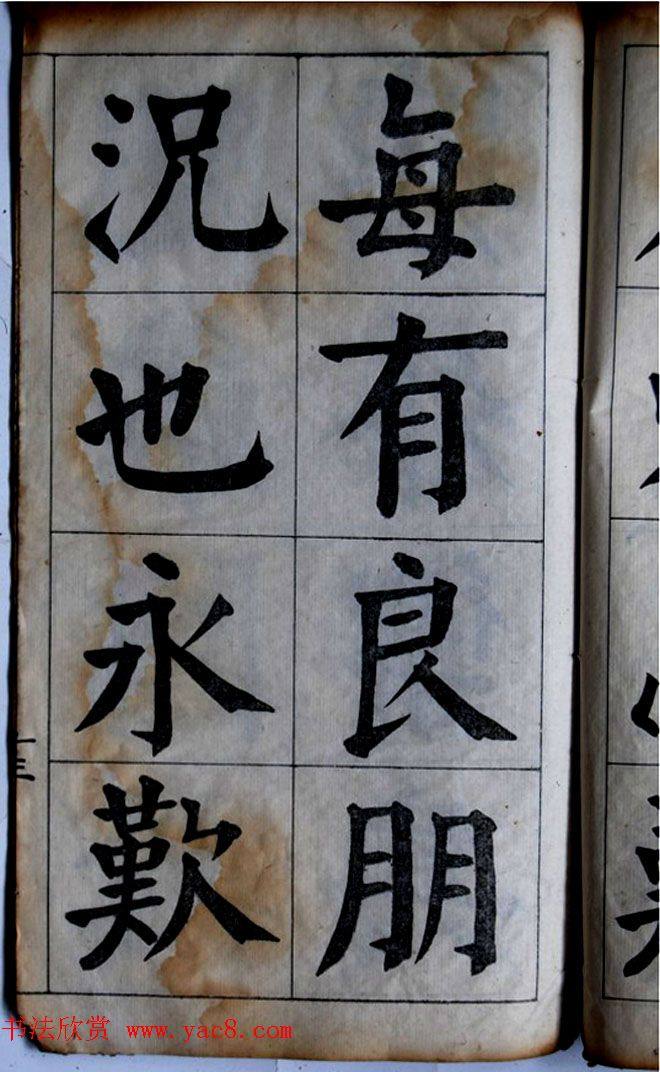 每有良朋
況也永歎
书法欣赏 www.yac8.com